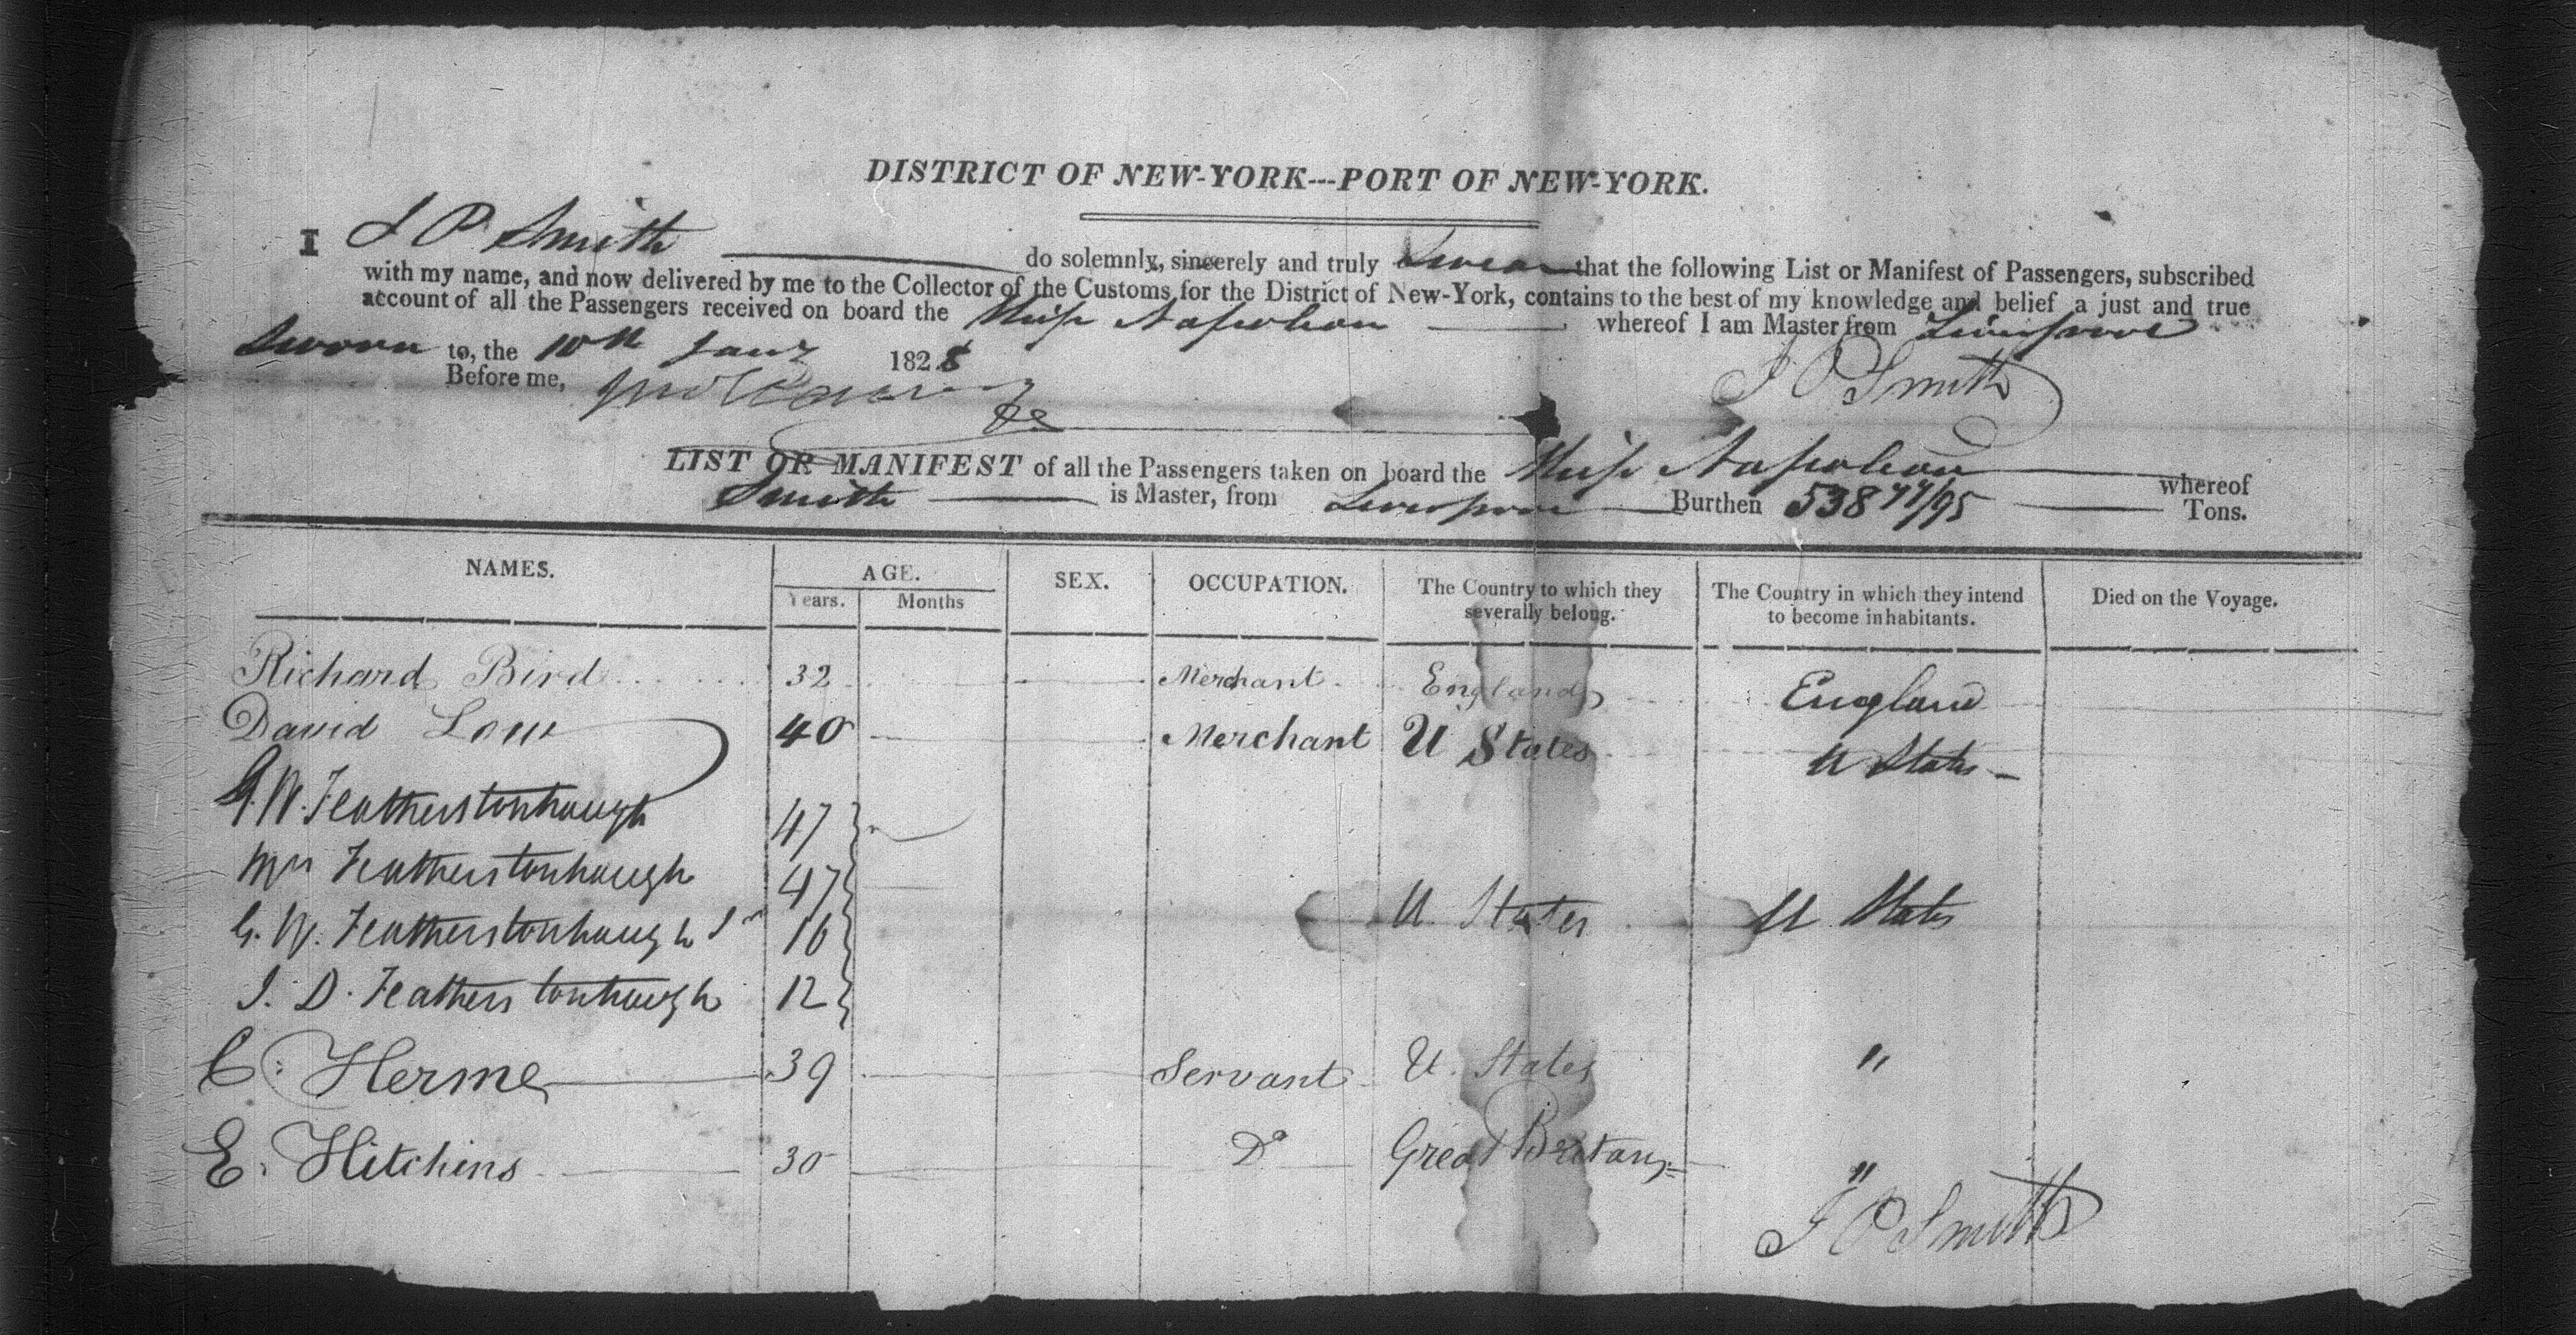 DISTRICT OF NEW-YORK---PORT OF NEW-YORK.
I J P Smith do solemnly, sincerely and truly Swear that the following List or Manifest of Passengers, subscribed
with my name, and now delivered by me to the Collector of the Customs for the District of New-York, contains to the best of my knowledge and belief a just and true
account of all the Passengers received on board the Ship Napoleon whereof I am Master from Liverpool
Sworn to, the 10th Jany 1828
Before me,
J P Smith
LIST OR MANIFEST of all the Passengers taken on board the Ship Napoleon whereof
Smith is Master, from Liverpool Burthen 538 Tons.
NAMES. AGE. SEX. OCCUPATION. The Country to which they severally belong. The Country in which they intend to become inhabitants. Died on the Voyage.
Years. Months
Richard Bird 32 Merchant England England
David Low 40 Merchant U States U States
G.W. Featherstonhaugh 47
Mrs Featherstonhaugh 47
G. W. Featherstonhaugh Jr 16 U States U States
J. D. Featherstonhaugh 12
C. Herme 39 Servant U. States "
E. Hitchins 30 Do Great Britany "
J P Smith